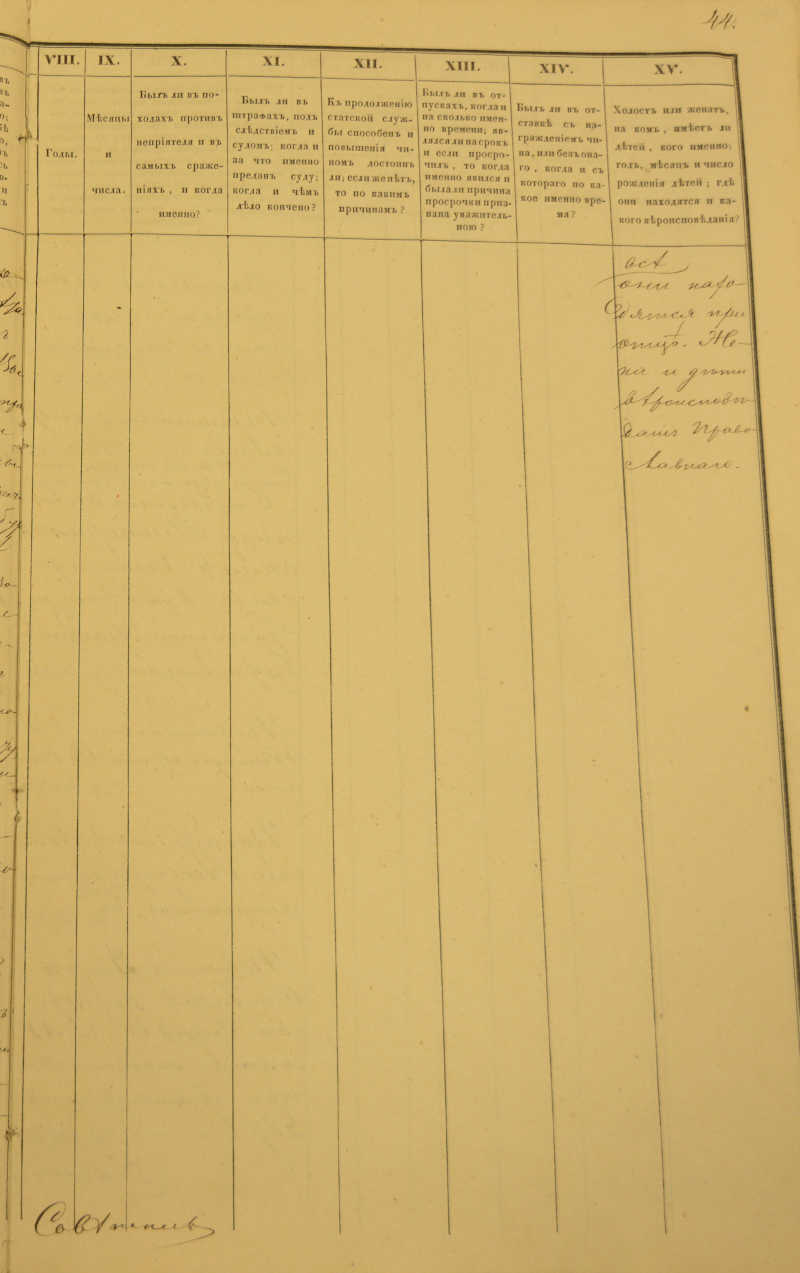 44.
VIII.
IX.
X.
XI.
XII.
XIII.
XIV.
XV.
Годы.
Мѣсяцы
и
числа.
Былъ ли въ по-
ходахъ противъ
непріятеля и въ
самыхъ сраже-
ніяхъ , и когда
именно?
Былъ ли въ
штрафахъ, подъ
слѣдствіемъ и
судомъ; когда и
за что именно
преданъ суду;
когда и чѣмъ
дѣло кончено?
Къ продолженію
статской служ-
бы способенъ и
повышенія чи-
номъ достоинъ
ли; если же нѣтъ,
то по какимъ
причинамъ ?
Былъ ли въ от-
пускахъ, когда и
на сколько имен-
но времени; яв-
лялся ли на срокъ
и если просро-
чилъ , то когда
именно явился и
была ли причина
просрочки приз-
нана уважитель-
ною ?
Былъ ли въ от-
ставкѣ съ на-
гражденіемъ чи-
на, или безъ она-
го , когда и съ
котораго по ка-
кое именно вре-
мя ?
Холостъ или женатъ,
на комъ , имѣетъ ли
дѣтей , кого именно;
годъ, мѣсяцъ и число
рожденія дѣтей ; гдѣ
они находятся и ка-
кого вѣроисповѣданія?
нахо-
дятся при
Же-
на и дѣти
вѣроисповѣ-
данія Право-
славнаго.